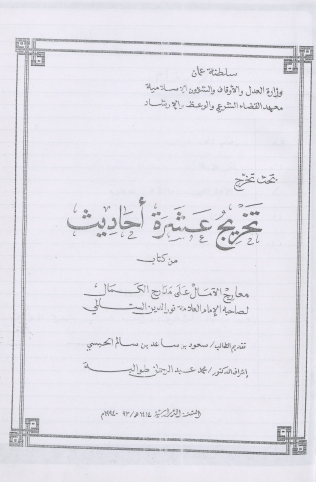 سلطنة عمان
وزارة العدل والأوقاف والشؤون الإسلامية
معهد القضاء الشرعي والوعظ والإرشاد
بحث تخرج
تخريج عشرة أحاديث
من كتاب
معارج الآمال على مدارج الكمال
لصاحبه الإمام العلامة نور الدين السالمي
تقديم الطالب / سعود بن ساعد بن سالم الحبسي
إشراف الدكتور / محمد عبد الرحمن طوالبة
السنة الدراسية ١٤١٤هـ / ٩٣ - ١٩٩٤م